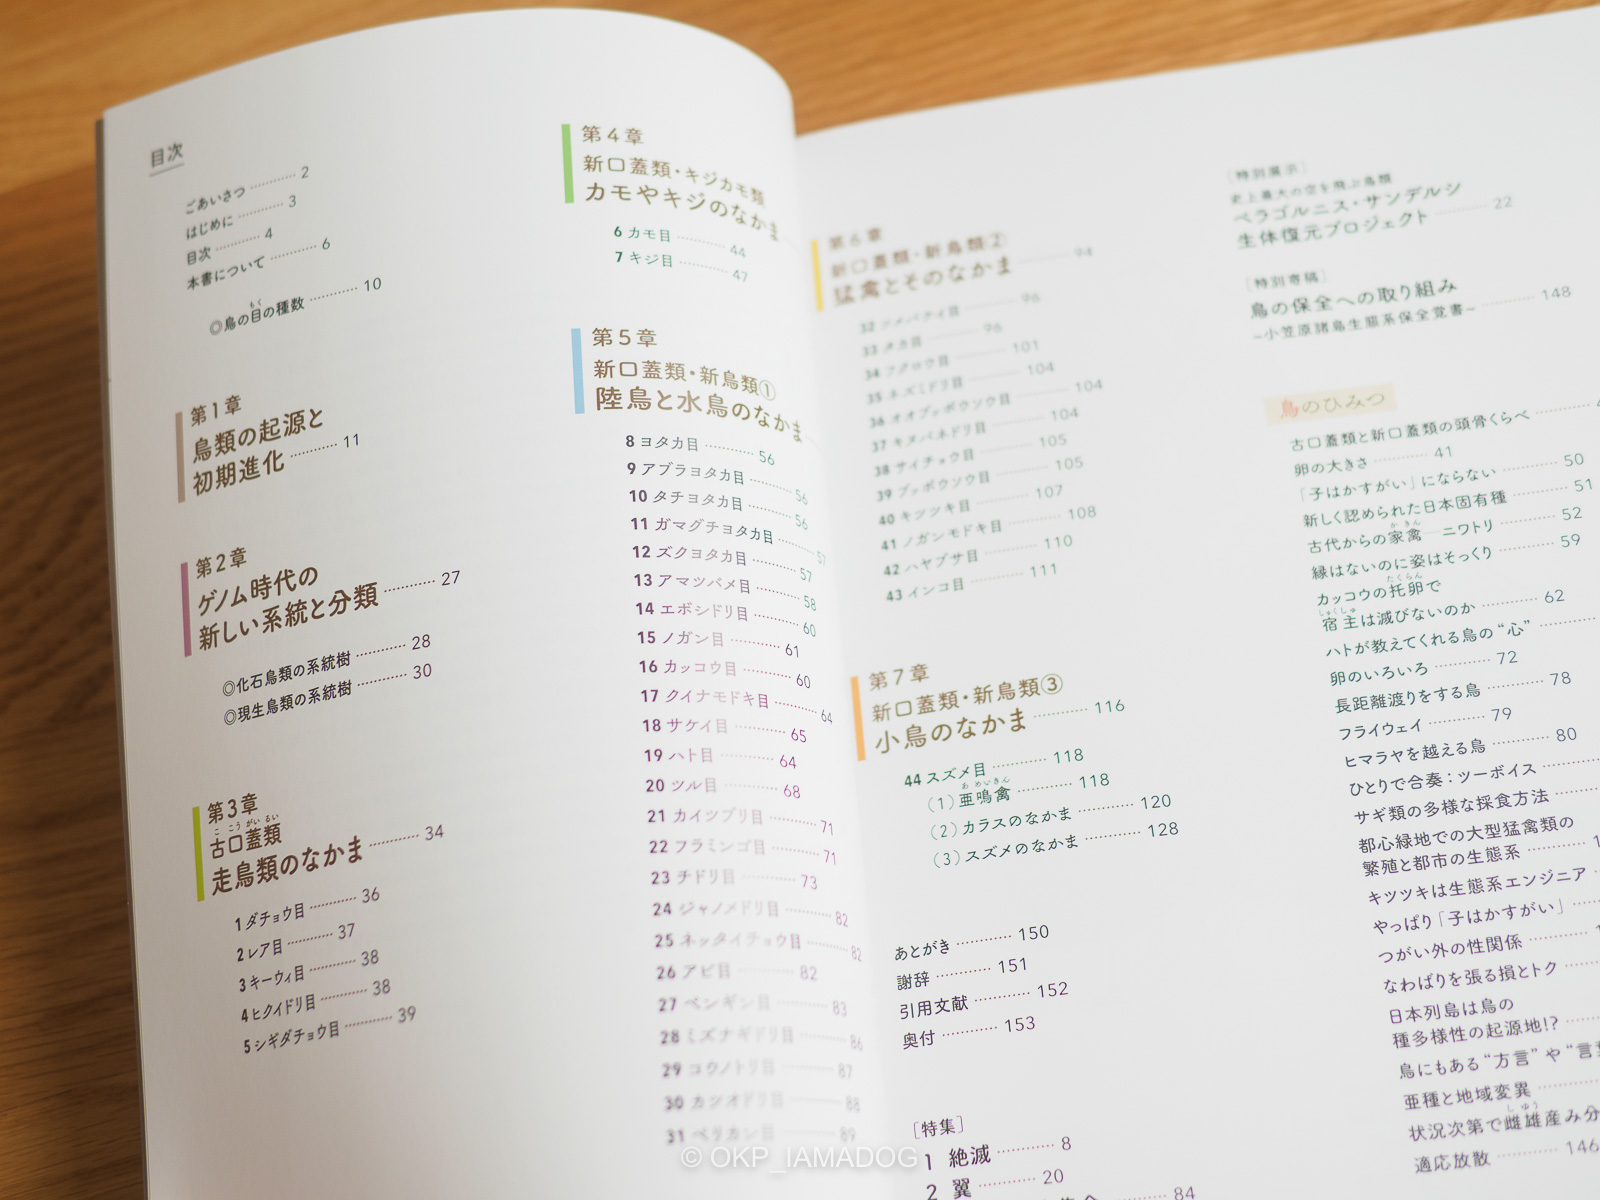 目次
ごあいさつ ………… 2
はじめに ………… 3
目次 ………… 4
本書について ………… 6
◎鳥の目の種数 ………… 10
もく
第1章
鳥類の起源と
初期進化 ………… 11
第2章
ゲノム時代の
新しい系統と分類 ………… 27
◎化石鳥類の系統樹 ………… 28
◎現生鳥類の系統樹 ………… 30
第3章
ここうがいるい
古口蓋類
走鳥類のなかま ………… 34
1 ダチョウ目 ………… 36
2 レア目 ………… 37
3 キーウィ目 ………… 38
4 ヒクイドリ目 ………… 38
5 シギダチョウ目 ………… 39
第4章
新口蓋類・キジカモ類
カモやキジのなかま
6 カモ目 ………… 44
7 キジ目 ………… 47
第5章
新口蓋類・新鳥類①
陸鳥と水鳥のなかま
8 ヨタカ目 ………… 56
9 アブラヨタカ目 ………… 56
10 タチヨタカ目 ………… 56
11 ガマグチヨタカ目 ………… 57
12 ズクヨタカ目 ………… 57
13 アマツバメ目 ………… 58
14 エボシドリ目 ………… 60
15 ノガン目 ………… 61
16 カッコウ目 ………… 60
17 クイナモドキ目 ………… 64
18 サケイ目 ………… 65
19 ハト目 ………… 64
20 ツル目 ………… 68
21 カイツブリ目 ………… 71
22 フラミンゴ目 ………… 71
23 チドリ目 ………… 73
24 ジャノメドリ目 ………… 82
25 ネッタイチョウ目 ………… 82
26 アビ目 ………… 82
27 ペンギン目 ………… 83
28 ミズナギドリ目 ………… 86
29 コウノトリ目 ………… 87
30 カツオドリ目 ………… 88
31 ペリカン目 ………… 89
第6章
新口蓋類・新鳥類②
猛禽とそのなかま ………… 94
32 ツメバケイ目 ………… 96
33 タカ目 ………… 96
34 フクロウ目 ………… 101
35 ネズミドリ目 ………… 104
36 オオブッポウソウ目 ………… 104
37 キヌバネドリ目 ………… 104
38 サイチョウ目 ………… 105
39 ブッポウソウ目 ………… 105
40 キツツキ目 ………… 107
41 ノガンモドキ目 ………… 108
42 ハヤブサ目 ………… 110
43 インコ目 ………… 111
第7章
新口蓋類・新鳥類③
小鳥のなかま ………… 116
44 スズメ目 ………… 118
あめいきん
(1)亜鳴禽 ………… 118
(2)カラスのなかま ………… 120
(3)スズメのなかま ………… 128
あとがき ………… 150
謝辞 ………… 151
引用文献 ………… 152
奥付 ………… 153
[特集]
1 絶滅 ………… 8
2 翼 ………… 20
84
[特別展示]
史上最大の空を飛ぶ鳥類
ペラゴルニス・サンデルシ
生体復元プロジェクト ………… 22
[特別寄稿]
鳥の保全への取り組み
−小笠原諸島生態系保全覚書− ………… 148
鳥のひみつ
古口蓋類と新口蓋類の頭骨くらべ …………
卵の大きさ ………… 41
「子はかすがい」にならない ………… 50
新しく認められた日本固有種 ………… 51
かきん
古代からの家禽―ニワトリ ………… 52
縁はないのに姿はそっくり ………… 59
たくらん
カッコウの托卵で
しゅくしゅ
宿主は滅びないのか ………… 62
ハトが教えてくれる鳥の“心” …………
卵のいろいろ ………… 72
長距離渡りをする鳥 ………… 78
フライウェイ ………… 79
ヒマラヤを越える鳥 ………… 80
ひとりで合奏：ツーボイス …………
サギ類の多様な採食方法 …………
都心緑地での大型猛禽類の
繁殖と都市の生態系 …………
キツツキは生態系エンジニア
やっぱり「子はかすがい」 …………
つがい外の性関係 …………
なわばりを張る損とトク …………
日本列島は鳥の
種多様性の起源地!? …………
鳥にもある“方言”や“言
亜種と地域変異 …………
しゆう
状況次第で雌雄産み分
適応放散 ………… 146
© OKP_IAMADOG